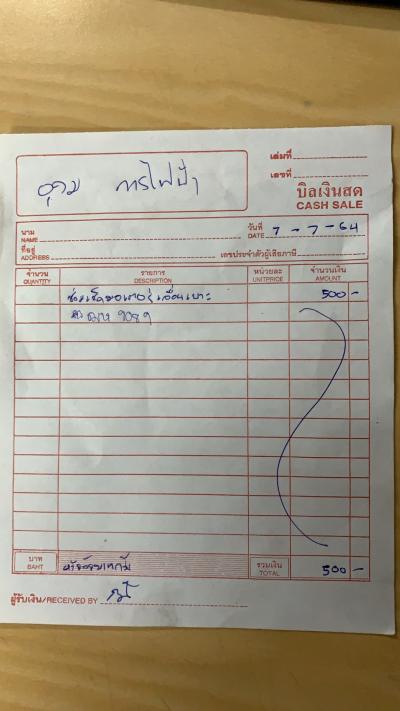 อุดม การไฟฟ้า
เล่มที่
เลขที่
บิลเงินสด
CASH SALE
นาม
NAME
วันที่
DATE 7 - 7 - 64
ที่อยู่
ADDRESS
เลขประจำตัวผู้เสียภาษี
จำนวน รายการ หน่วยละ จำนวนเงิน
QUANTITY DESCRIPTION UNITPRICE AMOUNT
500 -
บาท รวมเงิน
BAHT ห้าร้อยบาทถ้วน TOTAL 500 -
ผู้รับเงิน/RECEIVED BY